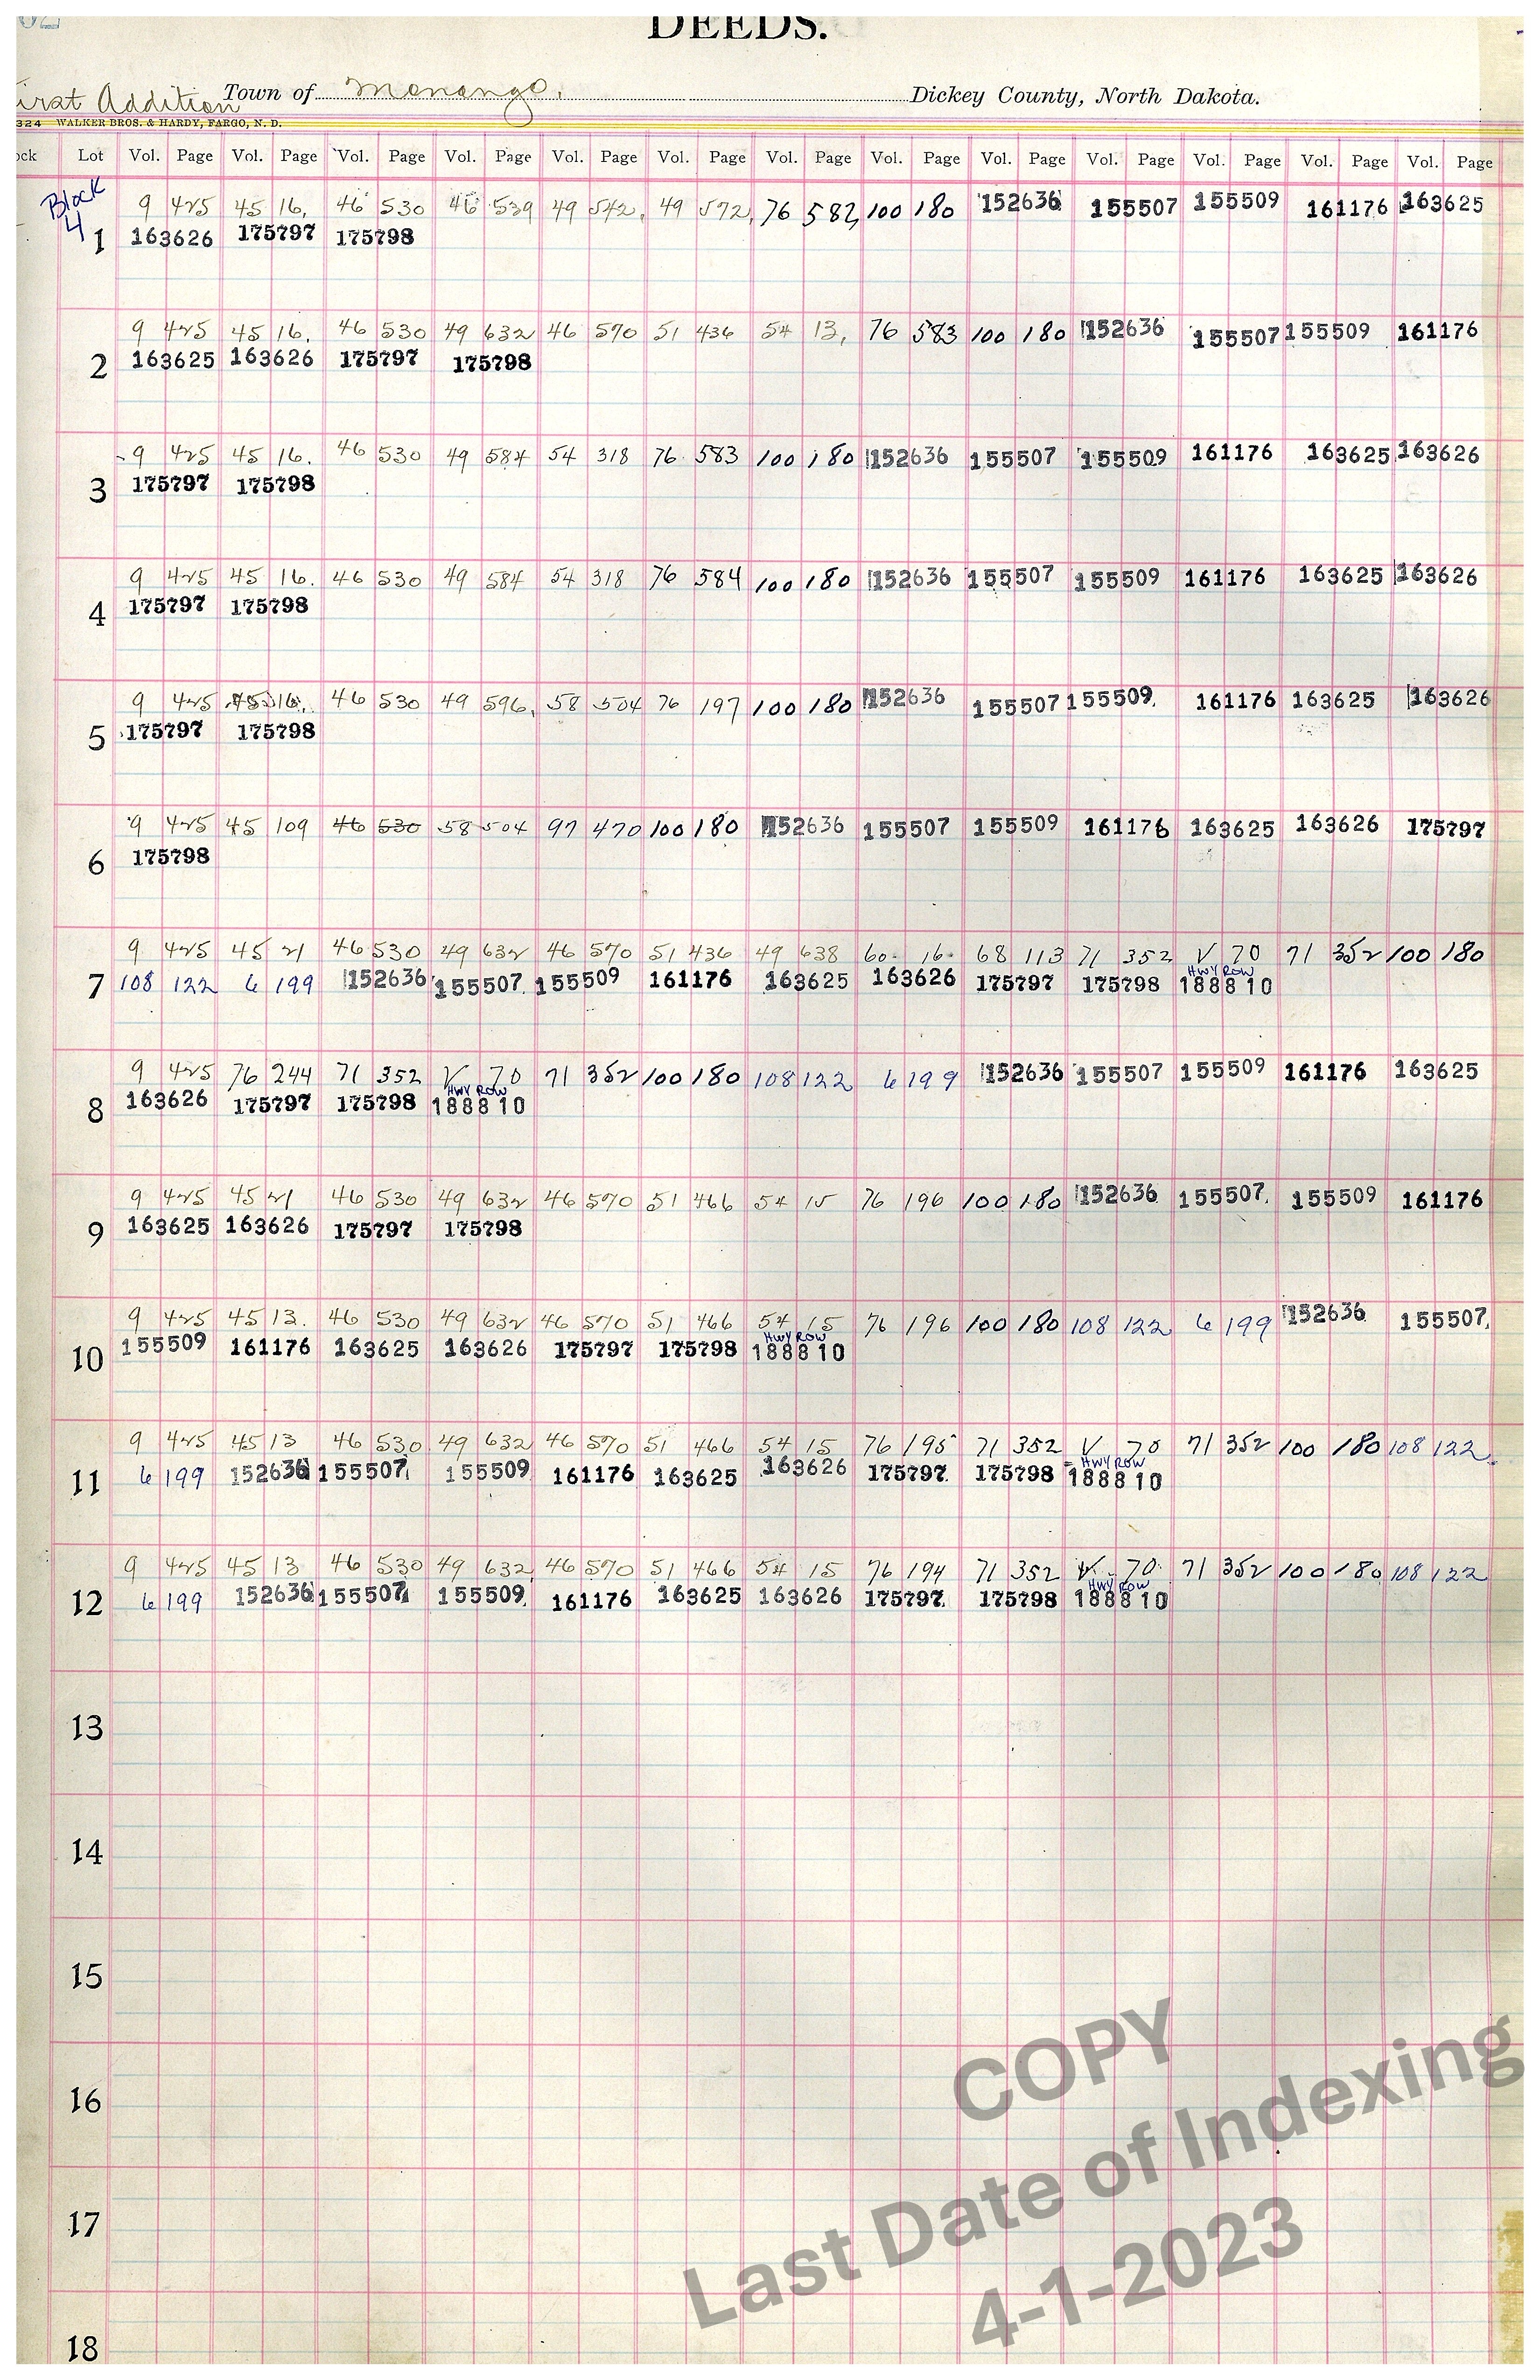 DEEDS.
irst Addition Town of Monango. Dickey County, North Dakota.
324 WALKER BROS. & HARDY, FARGO, N. D.
ock Lot Vol. Page Vol. Page Vol. Page Vol. Page Vol. Page Vol. Page Vol. Page Vol. Page Vol. Page Vol. Page Vol. Page Vol. Page Vol. Page
Block 4
9 425 45 16, 46 530 46 539 49 542, 49 572, 76 582, 100 180 152636 155507 155509 161176 163625
1 163626 175797 175798
9 425 45 16. 46 530 49 632 46 570 51 436 54 13, 76 583 100 180 152636 155507 155509 161176
2 163625 163626 175797 175798
9 425 45 16. 46 530 49 584 54 318 76 583 100 180 152636 155507 155509 161176 163625 163626
3 175797 175798
9 425 45 16. 46 530 49 584 54 318 76 584 100 180 152636 155507 155509 161176 163625 163626
4 175797 175798
9 425 45 16, 46 530 49 596, 58 504 76 197 100 180 152636 155507 155509. 161176 163625 163626
5 175797 175798
9 425 45 109 46 530 58 504 97 470 100 180 152636 155507 155509 161176 163625 163626 175797
6 175798
9 425 45 21 46 530 49 632 46 570 51 436 49 638 60 16 68 113 71 352 V 70 71 352 100 180
HWY ROW
7 108 122 6 199 152636 155507. 155509 161176 163625 163626 175797 175798 188810
9 425 76 244 71 352 V 70 71 352 100 180 108 122 6 199 152636 155507 155509 161176 163625
HWY ROW
8 163626 175797 175798 188810
9 425 45 21 46 530 49 632 46 570 51 466 54 15 76 196 100 180 152636 155507. 155509 161176
9 163625 163626 175797 175798
9 425 45 13. 46 530 49 632 46 570 51 466 54 15 76 196 100 180 108 122 6 199 152636 155507.
HWY ROW
10 155509 161176 163625 163626 175797 175798 188810
9 425 45 13 46 530. 49 632 46 570 51 466 54 15 76 195 71 352 V 70 71 352 100 180 108 122
HWY ROW
11 6 199 152636 155507 155509 161176 163625 163626 175797. 175798 188810
9 425 45 13 46 530 49 632, 46 570 51 466 54 15 76 194 71 352 V. 70. 71 352 100 180 108 122
HWY ROW
12 6 199 152636 155507 155509 161176 163625 163626 175797. 175798 188810
13
14
15
16
17
18
COPY
Last Date of Indexing
4-1-2023